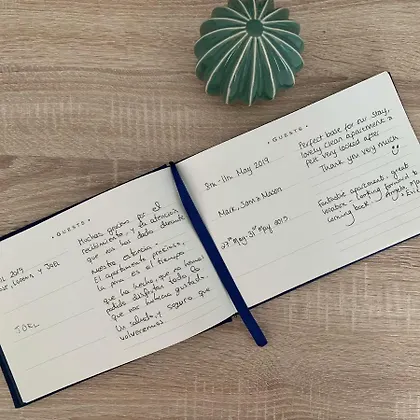 · GUESTS ·
2019
Y JOEL
JOEL
Muchas gracias por el
recibimiento, y la atención
que nos has dado durante
nuestra estancia.
El apartamento precioso,
la pena es el tiempo
que ha hecho, que no hemos
podido disfrutar todo lo
que nos hubiera gustado.
Un saludo, y seguro que
volveremos
· GUESTS ·
8th - 11th May 2019
Mark, Sam & Mason
Perfect base for our stay,
lovely clean apartment &
felt very looked after
Thank you very much
27th May - 31st May 2019
Fantastic apartment, great
location - looking forward to
coming back. Angela